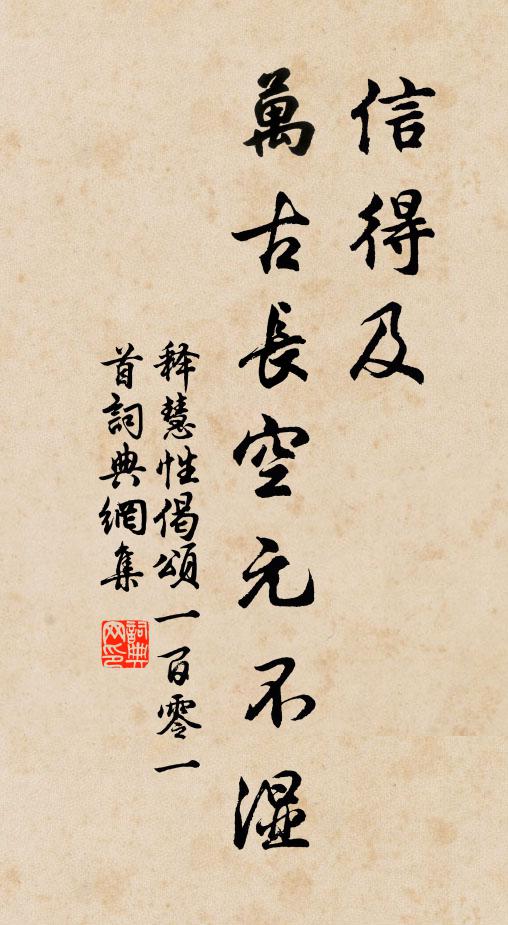 信得及
萬古長空元不湿
释慧性偈頌一百零一
首詞典網集
詞典
网印